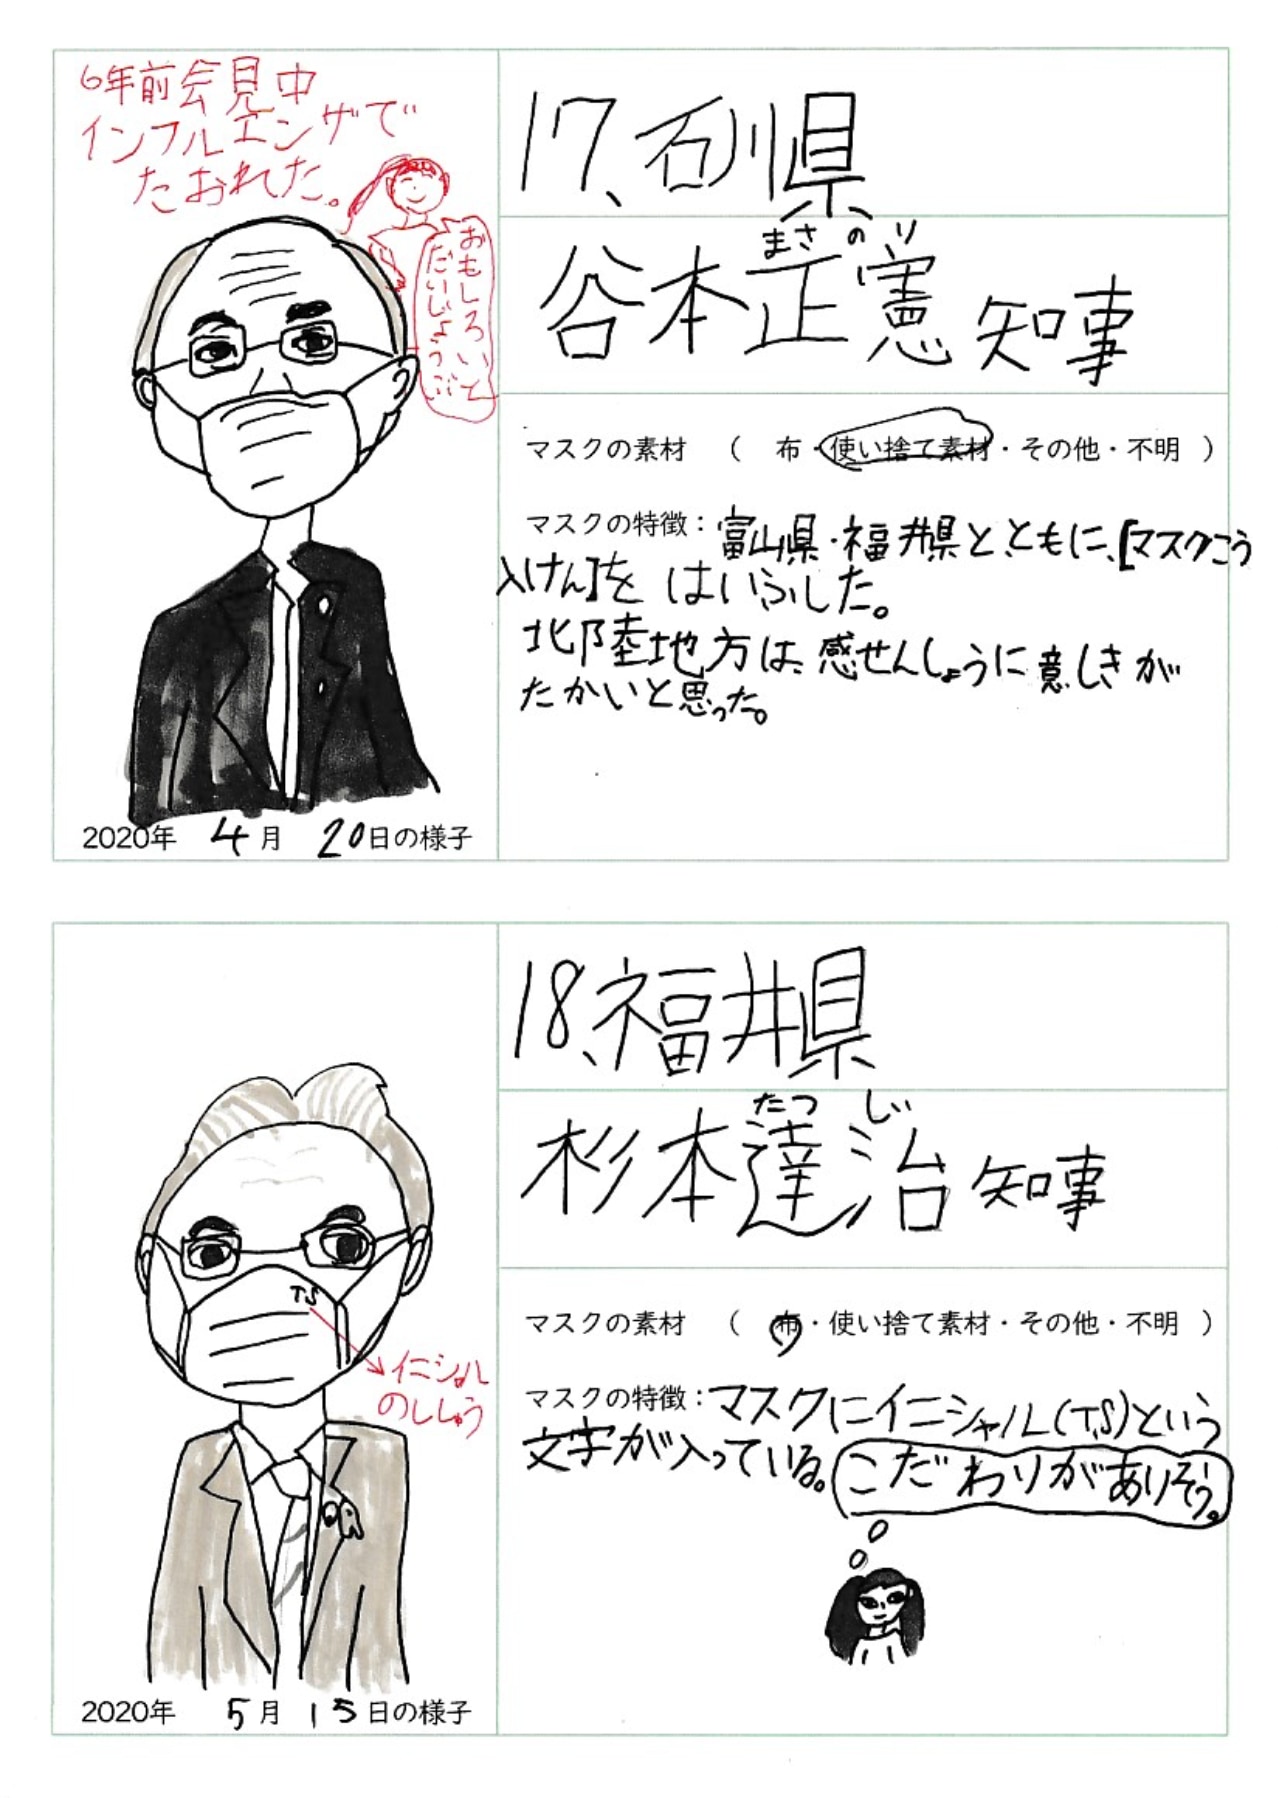 6年前会見中
インフルエンザで
たおれた。
おもしろいと
だいじょうぶ
17、石川県
まさのり
谷本正憲知事
マスクの素材 ( 布・使い捨て素材・その他・不明 )
マスクの特徴：富山県・福井県とともに、[マスクこう
入けん]を はいふした。
北陸地方は、感せんしょうに意しきが
たかいと思った。
2020年 4月 20日の様子
18、福井県
たつ じ
杉本達治知事
マスクの素材 ( 布・使い捨て素材・その他・不明 )
マスクの特徴：マスクにイニシャル(TS)という
文字が入っている。こだわりがありそう。
TS
イニシャル
のししゅう
2020年 5月 15日の様子